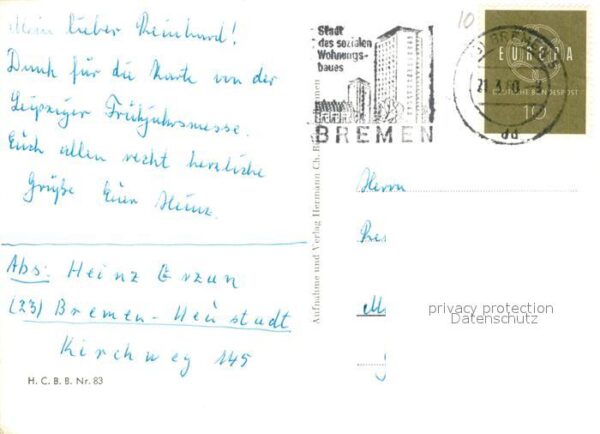 Mein lieber Reinhard!
Dank für die Karte von der
Leipziger Frühjahrsmesse.
Euch allen recht herzliche
Grüße Euer Heinz.
Abs: Heinz
(23) Bremen-Neustadt
Kirchweg 145
H. C. B. B. Nr. 83
Aufnahme und Verlag Hermann Ch.
Stadt
des sozialen
Wohnungs-
baues
BREMEN
10
EUROPA
DEUTSCHE BUNDESPOST
10
dd
Herrn
privacy protection
Datenschutz